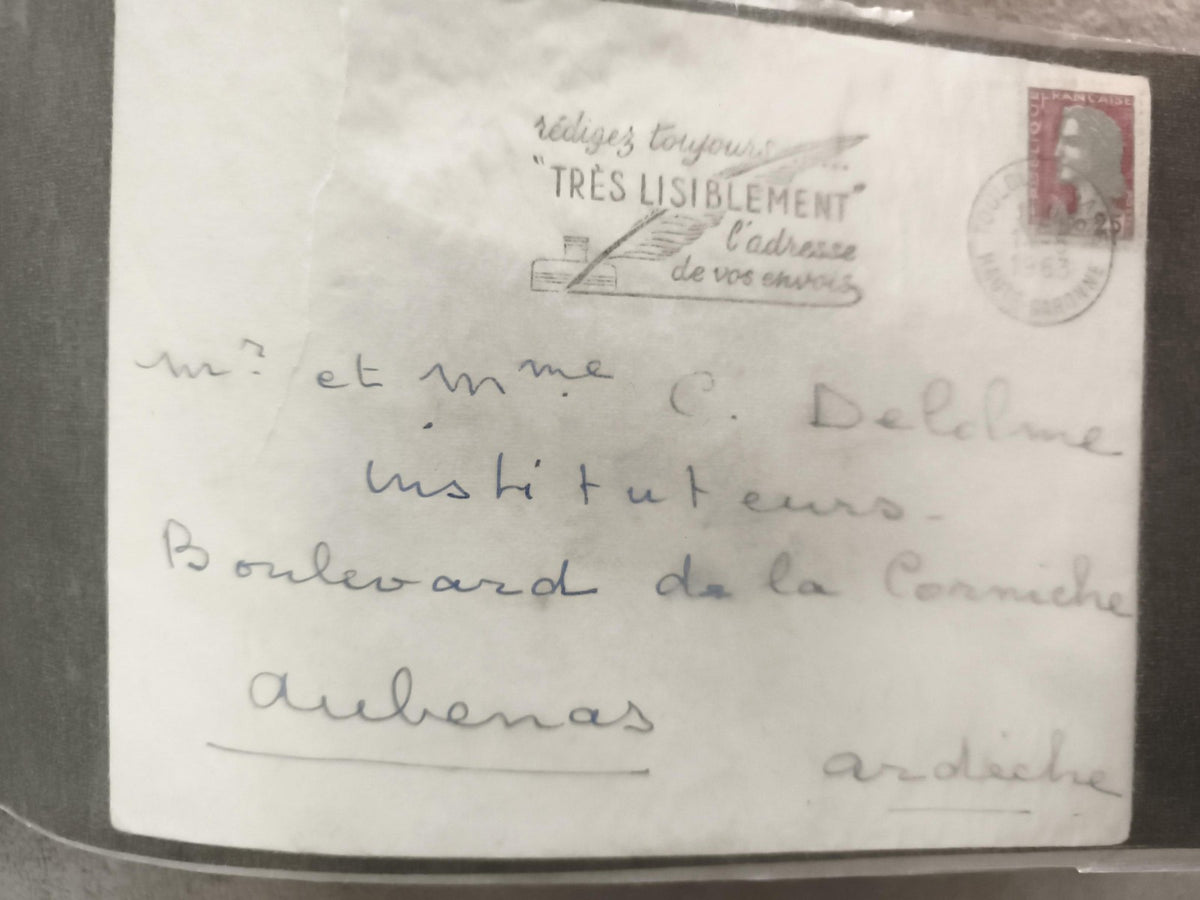 rédigez toujours...
"TRÈS LISIBLEMENT"
l'adresse
de vos envois
RÉPUBLIQUE FRANÇAISE
0,25
TOULOUSE
1963
HAUTE-GARONNE
Mr et Mme C. Delolme
instituteurs.
Boulevard de la Corniche
Aubenas
Ardèche